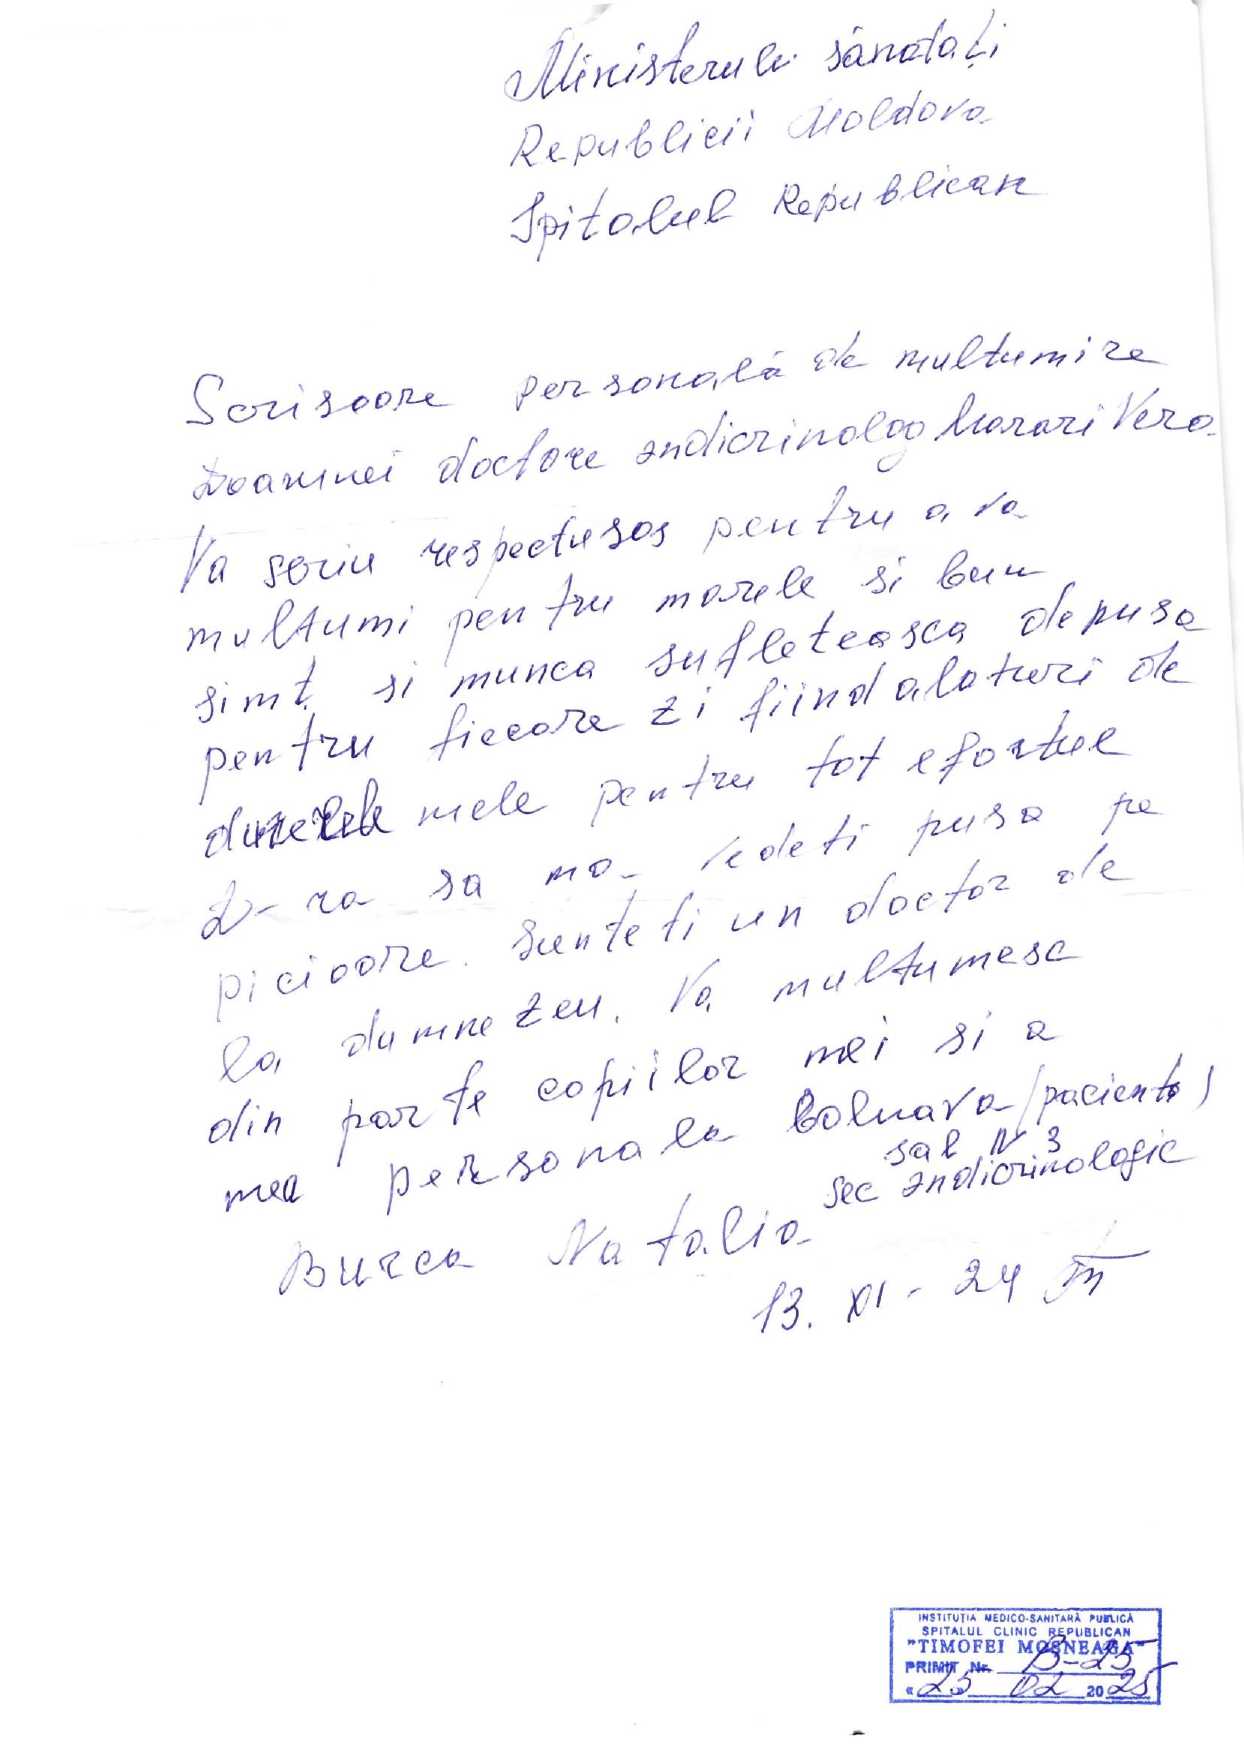 Ministerului sănătați
Republicii Moldova
Spitalul Republican
Scrisoare personală de multumire
Doamnei doctore endicrinolog Morari Vera
Va scriu respectuos pentru a va
multumi pentru marele si bun
simț si munca sufleteasca depusa
pentru fiecare zi fiind alaturi de
durerile mele pentru tot efortul
D-ra sa ma vedeti pusa pe
picioare. Sunteti un doctor de
la dumnezeu. Va multumesc
din parte copiilor mei si a
mea personala bolnava (pacienta)
sal N 3
sec endicrinologic
Burca Natalia
13. XI - 24
INSTITUȚIA MEDICO-SANITARĂ PUBLICĂ
SPITALUL CLINIC REPUBLICAN
"TIMOFEI MOȘNEAGA"
PRIMIT Nr. B-25
«25» 02 2025